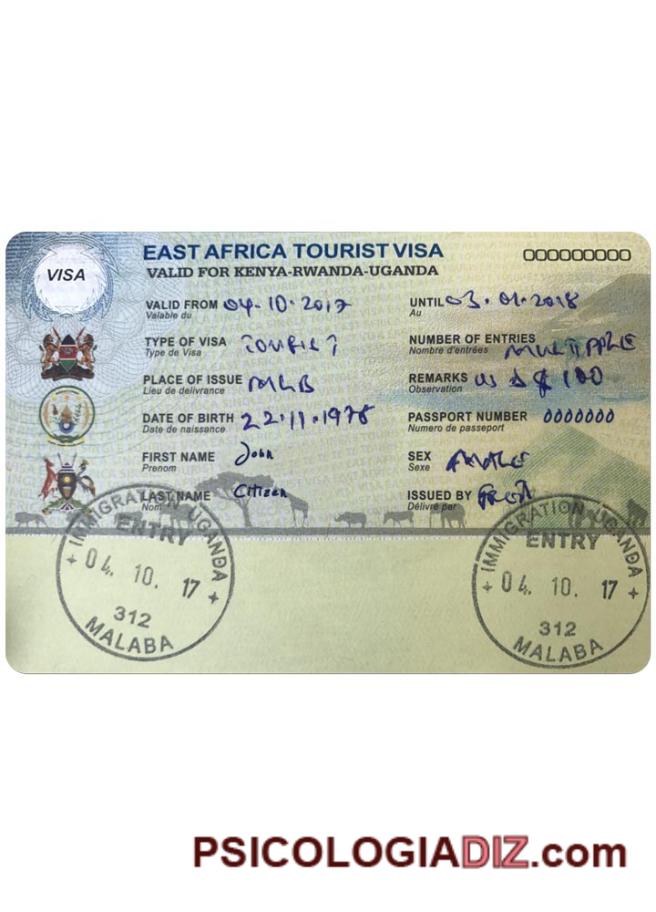 VISA
EAST AFRICA TOURIST VISA
OOOOOOOOO
VALID FOR KENYA-RWANDA-UGANDA
VALID FROM 04.10.2017
Valable du
UNTIL 03.01.2018
Au
TYPE OF VISA TOURIST
Type de Visa
NUMBER OF ENTRIES MULTIPLE
Nombre d'entrées
PLACE OF ISSUE MLB
Lieu de delivrance
REMARKS US $ 100
Observation
DATE OF BIRTH 22.11.1978
Date de naissance
PASSPORT NUMBER 0000000
Numero de passeport
FIRST NAME John
Prenom
SEX MALE
Sexe
LAST NAME Citizen
Nom
ISSUED BY
Délivré par
IMMIGRATION UGANDA
ENTRY
04. 10. 17
312
MALABA
IMMIGRATION UGANDA
ENTRY
04. 10. 17
312
MALABA
PSICOLOGIADIZ.com